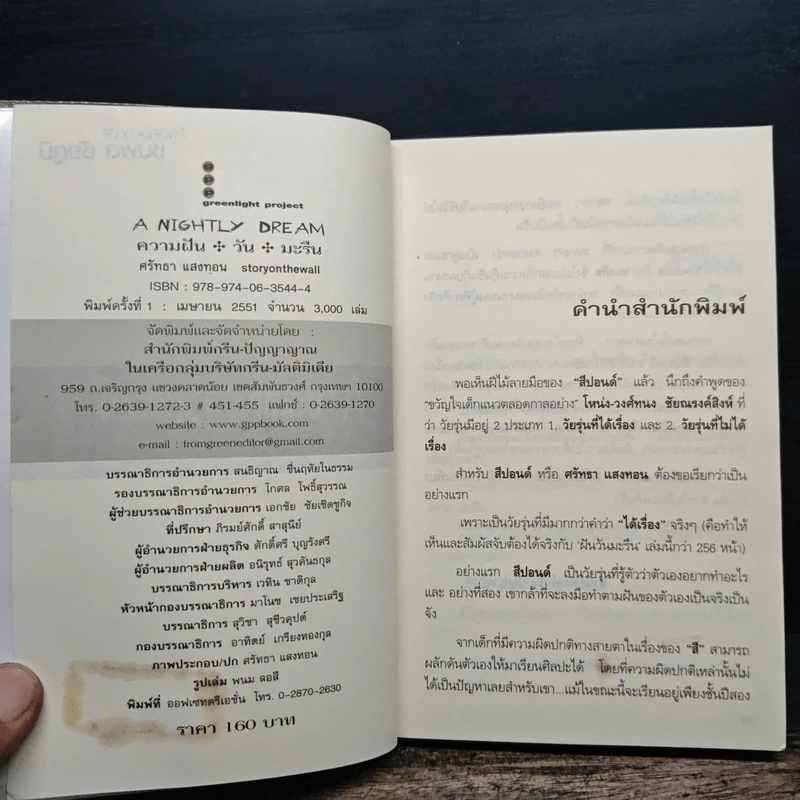 greenlight project
A NIGHTLY DREAM
ความฝัน ✣ วัน ✣ มะรืน
ศรัทธา แสงทอน storyonthewall
ISBN : 978-974-06-3544-4
พิมพ์ครั้งที่ 1 : เมษายน 2551 จำนวน 3,000 เล่ม
จัดพิมพ์และจัดจำหน่ายโดย :
สำนักพิมพ์กรีน-ปัญญาญาณ
ในเครือกลุ่มบริษัทกรีน-มัลติมีเดีย
959 ถ.เจริญกรุง แขวงตลาดน้อย เขตสัมพันธวงศ์ กรุงเทพฯ 10100
โทร. 0-2639-1272-3 # 451-455 แฟกซ์ : 0-2639-1270
website : www.gppbook.com
e-mail : fromgreeneditor@gmail.com
บรรณาธิการอำนวยการ สนธิญาณ ชื่นฤทัยในธรรม
รองบรรณาธิการอำนวยการ โกศล โพธิ์สุวรรณ
ผู้ช่วยบรรณาธิการอำนวยการ เอกชัย ชัยเชิดชูกิจ
ที่ปรึกษา ภิรมย์ศักดิ์ สาสุนีย์
ผู้อำนวยการฝ่ายธุรกิจ ศักดิ์ศรี บุญรังศรี
ผู้อำนวยการฝ่ายผลิต อนิรุทธ์ สุวคันธกุล
บรรณาธิการบริหาร เวทิน ชาติกุล
หัวหน้ากองบรรณาธิการ มาโนช เชยประเสริฐ
บรรณาธิการ สุวิชา สุชีวคุปต์
กองบรรณาธิการ อาทิตย์ เกรียงทองกุล
ภาพประกอบ/ปก ศรัทธา แสงทอน
รูปเล่ม พนม ลอสี
พิมพ์ที่ ออฟเซทครีเอชั่น โทร. 0-2870-2630
ราคา 160 บาท
คำนำสำนักพิมพ์
พอเห็นฝีไม้ลายมือของ “สีปอนด์” แล้ว นึกถึงคำพูดของ
“ขวัญใจเด็กแนวตลอดกาลอย่าง” โหน่ง-วงศ์ทนง ชัยณรงค์สิงห์ ที่
ว่า วัยรุ่นมีอยู่ 2 ประเภท 1. วัยรุ่นที่ได้เรื่อง และ 2. วัยรุ่นที่ไม่ได้
เรื่อง
สำหรับ สีปอนด์ หรือ ศรัทธา แสงทอน ต้องขอเรียกว่าเป็น
อย่างแรก
เพราะเป็นวัยรุ่นที่มีมากกว่าคำว่า “ได้เรื่อง” จริงๆ (คือทำให้
เห็นและสัมผัสจับต้องได้จริงกับ ‘ฝันวันมะรืน’ เล่มนี้กว่า 256 หน้า)
อย่างแรก สีปอนด์ เป็นวัยรุ่นที่รู้ตัวว่าตัวเองอยากทำอะไร
และ อย่างที่สอง เขากล้าที่จะลงมือทำตามฝันของตัวเองเป็นจริงเป็น
จัง
จากเด็กที่มีความผิดปกติทางสายตาในเรื่องของ “สี” สามารถ
ผลักดันตัวเองให้มาเรียนศิลปะได้ โดยที่ความผิดปกติเหล่านั้นไม่
ได้เป็นปัญหาเลยสำหรับเขา...แม้ในขณะนี้จะเรียนอยู่เพียงชั้นปีสอง